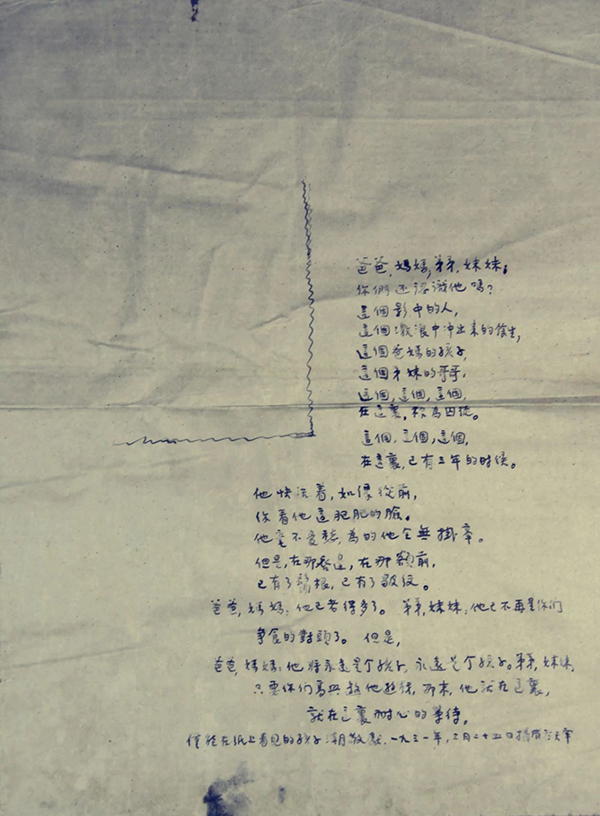 爸爸,媽媽,弟弟,妹妹,
你們还認識他嗎?
這個影中的人,
這個激浪中冲出來的餘生,
這個爸媽的孩子,
這個弟妹的哥哥,
這個,這個,這個,
在這裏,称為囚徒。
這個,這個,這個,
在這裏,已有三年的时候。
他快活着,如像從前,
你看他這肥肥的臉。
他毫不憂愁,為的他全無掛牽。
但是,在那唇邊,在那額前,
已有了鬍根,已有了皺紋。
爸爸,媽媽,他已老得多了。 弟弟,妹妹,他已不再是你们
爭食的對頭了。 但是,
爸爸,媽媽,他將永遠是个孩子,永遠是个孩子。弟弟,妹妹,
只要你们高興
他就在這裏,
就在這裏耐心的等待。
僅能在纸上看見的孩子
一九三一年,二月二十五日